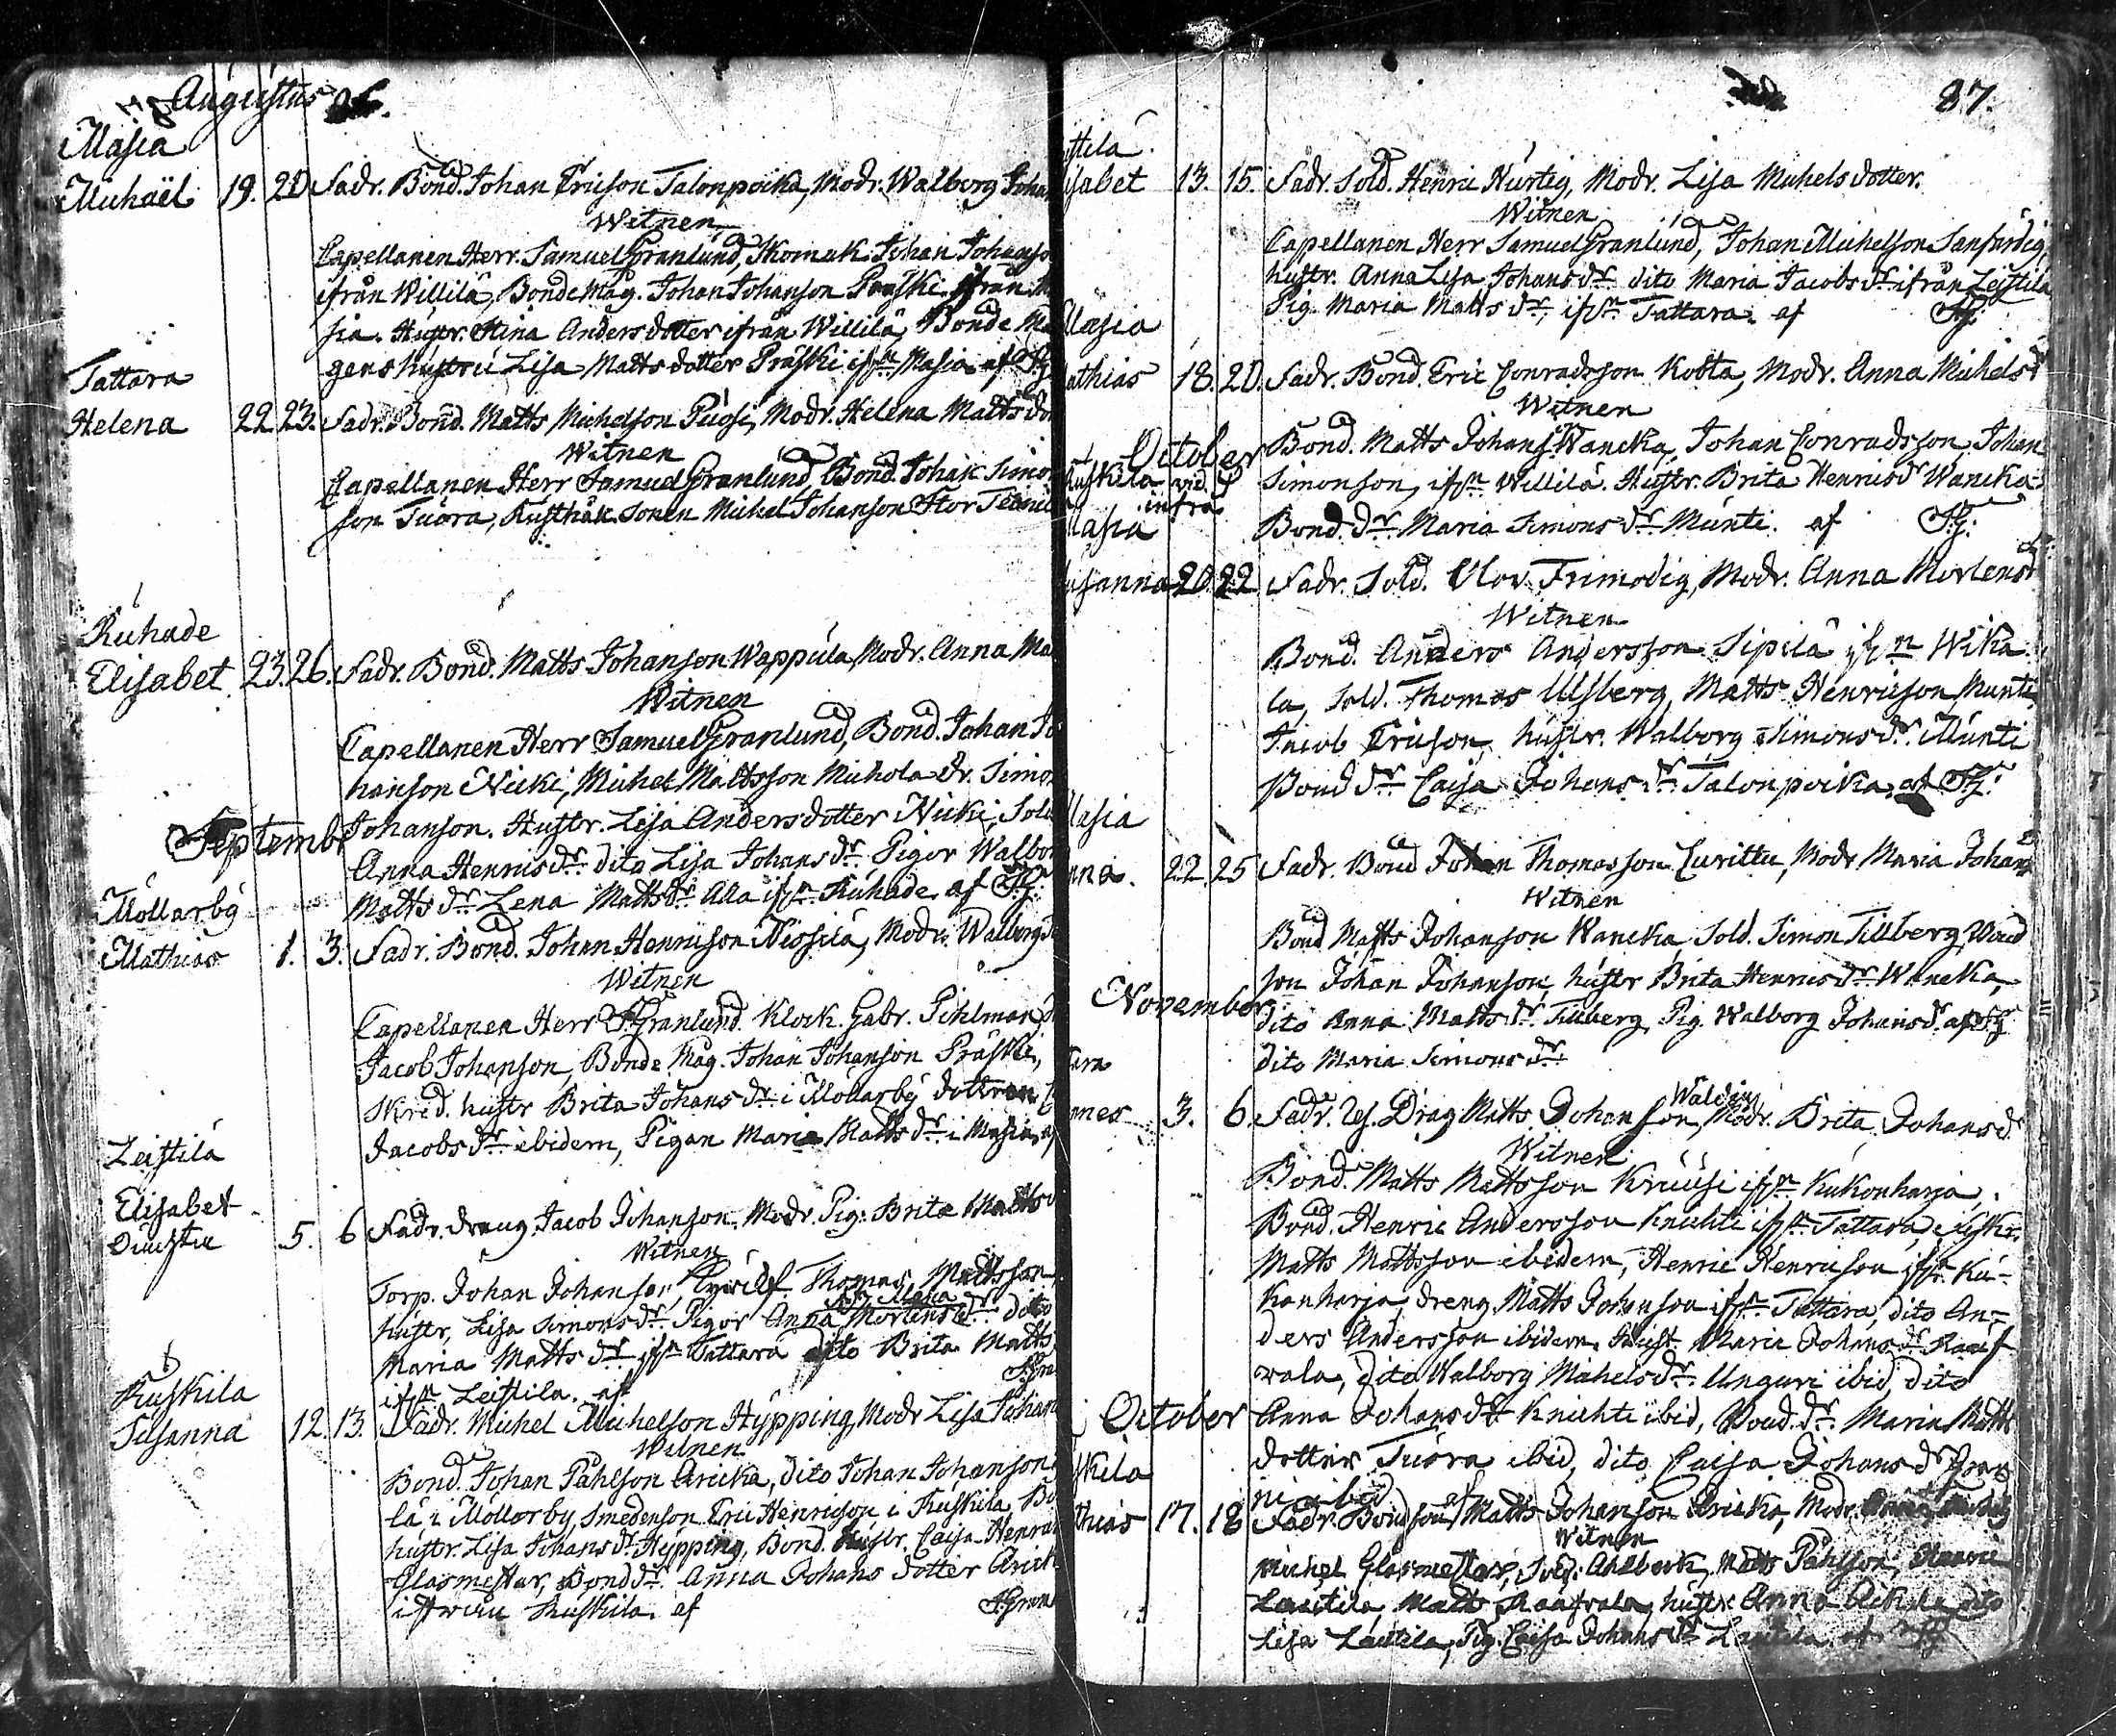 Augustus
Masia
Michaël 19. 21. Fadr. Bond. Johan Ericson Talonpoika, Modr. Walborg Johan
Witnen
Capellanen Herr Samuel Granlund, Skomak. Johan Johanso
ifrån Willilä, Bonde Måg. Johan Johanson Präski ifrån Ma
sia. Hustr. Stina Andersdotter ifrån Willilä, Bonde Må
gens hustru Lisa Mattsdotter Präski ifrn Masia af SG
Tattara
Helena 22 23. Fadr. Bond. Matts Michelson Piusi, Modr. Helena Matts do
Witnen
Capellanen Herr Samuel Granlund, Bond. Johan Simon
son Tuora, Rusthåls Sonen Michel Johanson Stor
Ruhade
Elisabet 23. 26. Fadr. Bond. Matts Johanson Wappula, Modr. Anna Ma
Witnen
Capellanen Herr Samuel Granlund, Bond. Johan Jo
hanson Nicki, Michel Mattsson Michola dr. Simon
Septembr
Johanson. Hustr. Lisa Andersdotter Nicki, Sold
Anna Henrisdr. dito Lisa Johansdr. Pigor Walbor
Mattsdr. Lena Mattsdr. Alla ifrn Ruhade af SG.
Mollarby
Mathias 1. 3. Fadr. Bond. Johan Henrison Nissilä, Modr. Walborg
Witnen
Capellanen Herr S. Granlund. Klock. Gabr. Pihlman,
Jacob Johanson, Bonde Måg. Johan Johanson Präski,
Skred. hustr Brita Johansdr. i Mollarby dottren
Jacobsdr ibidem, Pigan Maria Mattsdr i Masia, af
Leistilä
Elisabet
5. 6 Fadr. dräng Jacob Johanson. Modr. Pig: Brita Matts
Witnen
Torp. Johan Johanson, Thomas Mattsson
hustr, Lisa Simonsdr. Pigor Anna Mortensdr. dito
Maria Mattsdr. ifrn Tattara dito Brita Matts
ifrn Leistila. af
Ruskila
Susanna 12. 13. Fadr. Michel Michelson Hypping, Modr Lisa Johan
Witnen
Bond. Johan Påhlson Aricka, dito Johan Johanson
lä i Mollorby, Smedenson Eric Henricson i Ruskila, Bo
hustr. Lisa Johansdr Hypping, Bond. hustr. Caisa Henra
Glasmestar, Bonddr. Anna Johans dotter Arick
Ruskila. af SGran
87.
stila.
isabet 13. 15. Fadr. Sold. Henric Hurtig, Modr. Lisa Michels dotter.
Witnen
Capellanen Herr Samuel Granlund, Johan Michelson Sanfärdig,
hustr. Anna Lisa Johansdr. dito Maria Jacobsdr. ifrån Leistila
Pig. Maria Matts dr, ifrn Tattara. af SG.
Masia
athias 18. 20. Fadr. Bond. Eric Conradsson Kobta, Modr. Anna Michelsdr
Witnen
Bond. Matts Johans: Wancka, Johan Conradsson, Johan
October
Simonson, ifrn Willilä. Hustr. Brita Henricsdr Wancka
Ruskila vid.
infra
Bond. dr Maria Simonsdr Munti. af SG.
Masia
usanna 20. 22 Fadr. Sold. Olov Frimodig, Modr. Anna Mortensdr
Witnen
Bond. Anders Andersson Sipilä ifrn Wika
la, Sold. Thomas Ulsberg, Matts Henricson Munti
Jacob Ericson, hustr. Walborg Simonsdr. Munti
Bond dr. Caisa Johansdr. Talonpoika, af SG.
Masia
nna. 22. 25 Fadr. Bond Johan Thomasson Curittu, Modr Maria Johans
Witnen
Bond Matts Johanson Wancka, Sold. Simon Tillberg, Bond
son Johan Johanson, hustr Brita Henricsdr. Wancka,
November
dito Anna Mattsdr. Tillberg, Pig. Walborg Johansdr. af SG
dito Maria Simonsdr
nnes 3. 6. Fadr. Drag Matts Johanson Waldin, Modr. Brita Johansd.
Witnen
Bond. Matts Mattsson Kruusi ifrn Kukonharja
Bond. Henric Andersson Knichti ifrn Tattara,
Matts Mattsson ibidem, Henric Henricson ifrn. Ku-
konharja, dreng Matts Johanson ifrn Tattara, dito An-
ders Andersson ibidem. Hust. Maria Johansdr Raaf
vala, dito Walborg Michelsdr. Unguri ibid, dito
October
Anna Johansdr Knichti ibid, Bond. dr. Maria Matts
dotter Tuora ibid, dito Caisa Johansdr
ni ibid af
skila
thias 17. 18 Fadr. Bondson Matts Johanson Aricka, Modr.
Witnen
Michel Glasmestar, Sold. Ahlberk, Matts Påhlson,
Lautila, Matts Raafvala, hustr. Anna dito
Lisa Lautila, Pig. Caisa Johansdr Lautila. af SG